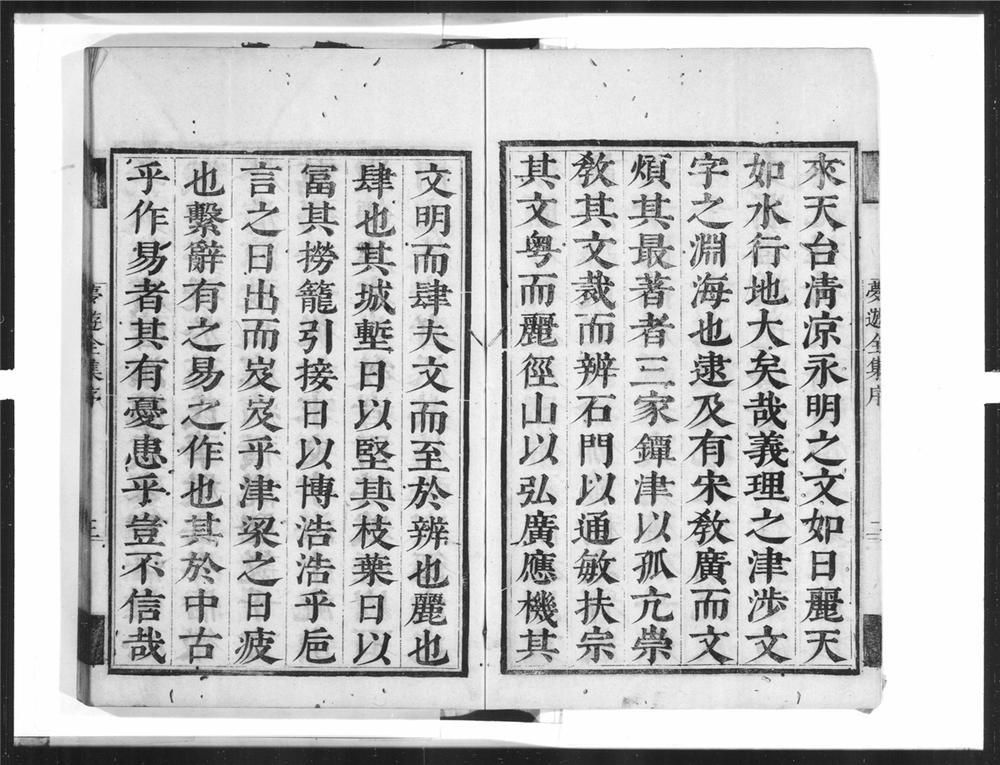 夢遊全集序
二
來天台清凉永明之文如日麗天
如水行地大矣哉義理之津涉文
字之淵海也逮及有宋教廣而文
煩其最著者三家鐔津以孤亢崇
教其文裁而辨石門以通敏扶宗
其文粤而麗徑山以弘廣應機其
文明而肆夫文而至於辨也麗也
肆也其城塹日以堅其枝葉日以
冨其撈籠引接日以博浩浩乎巵
言之日出而岌岌乎津梁之日疲
也繫辭有之易之作也其於中古
乎作易者其有憂患乎豈不信哉
夢遊全集序
三